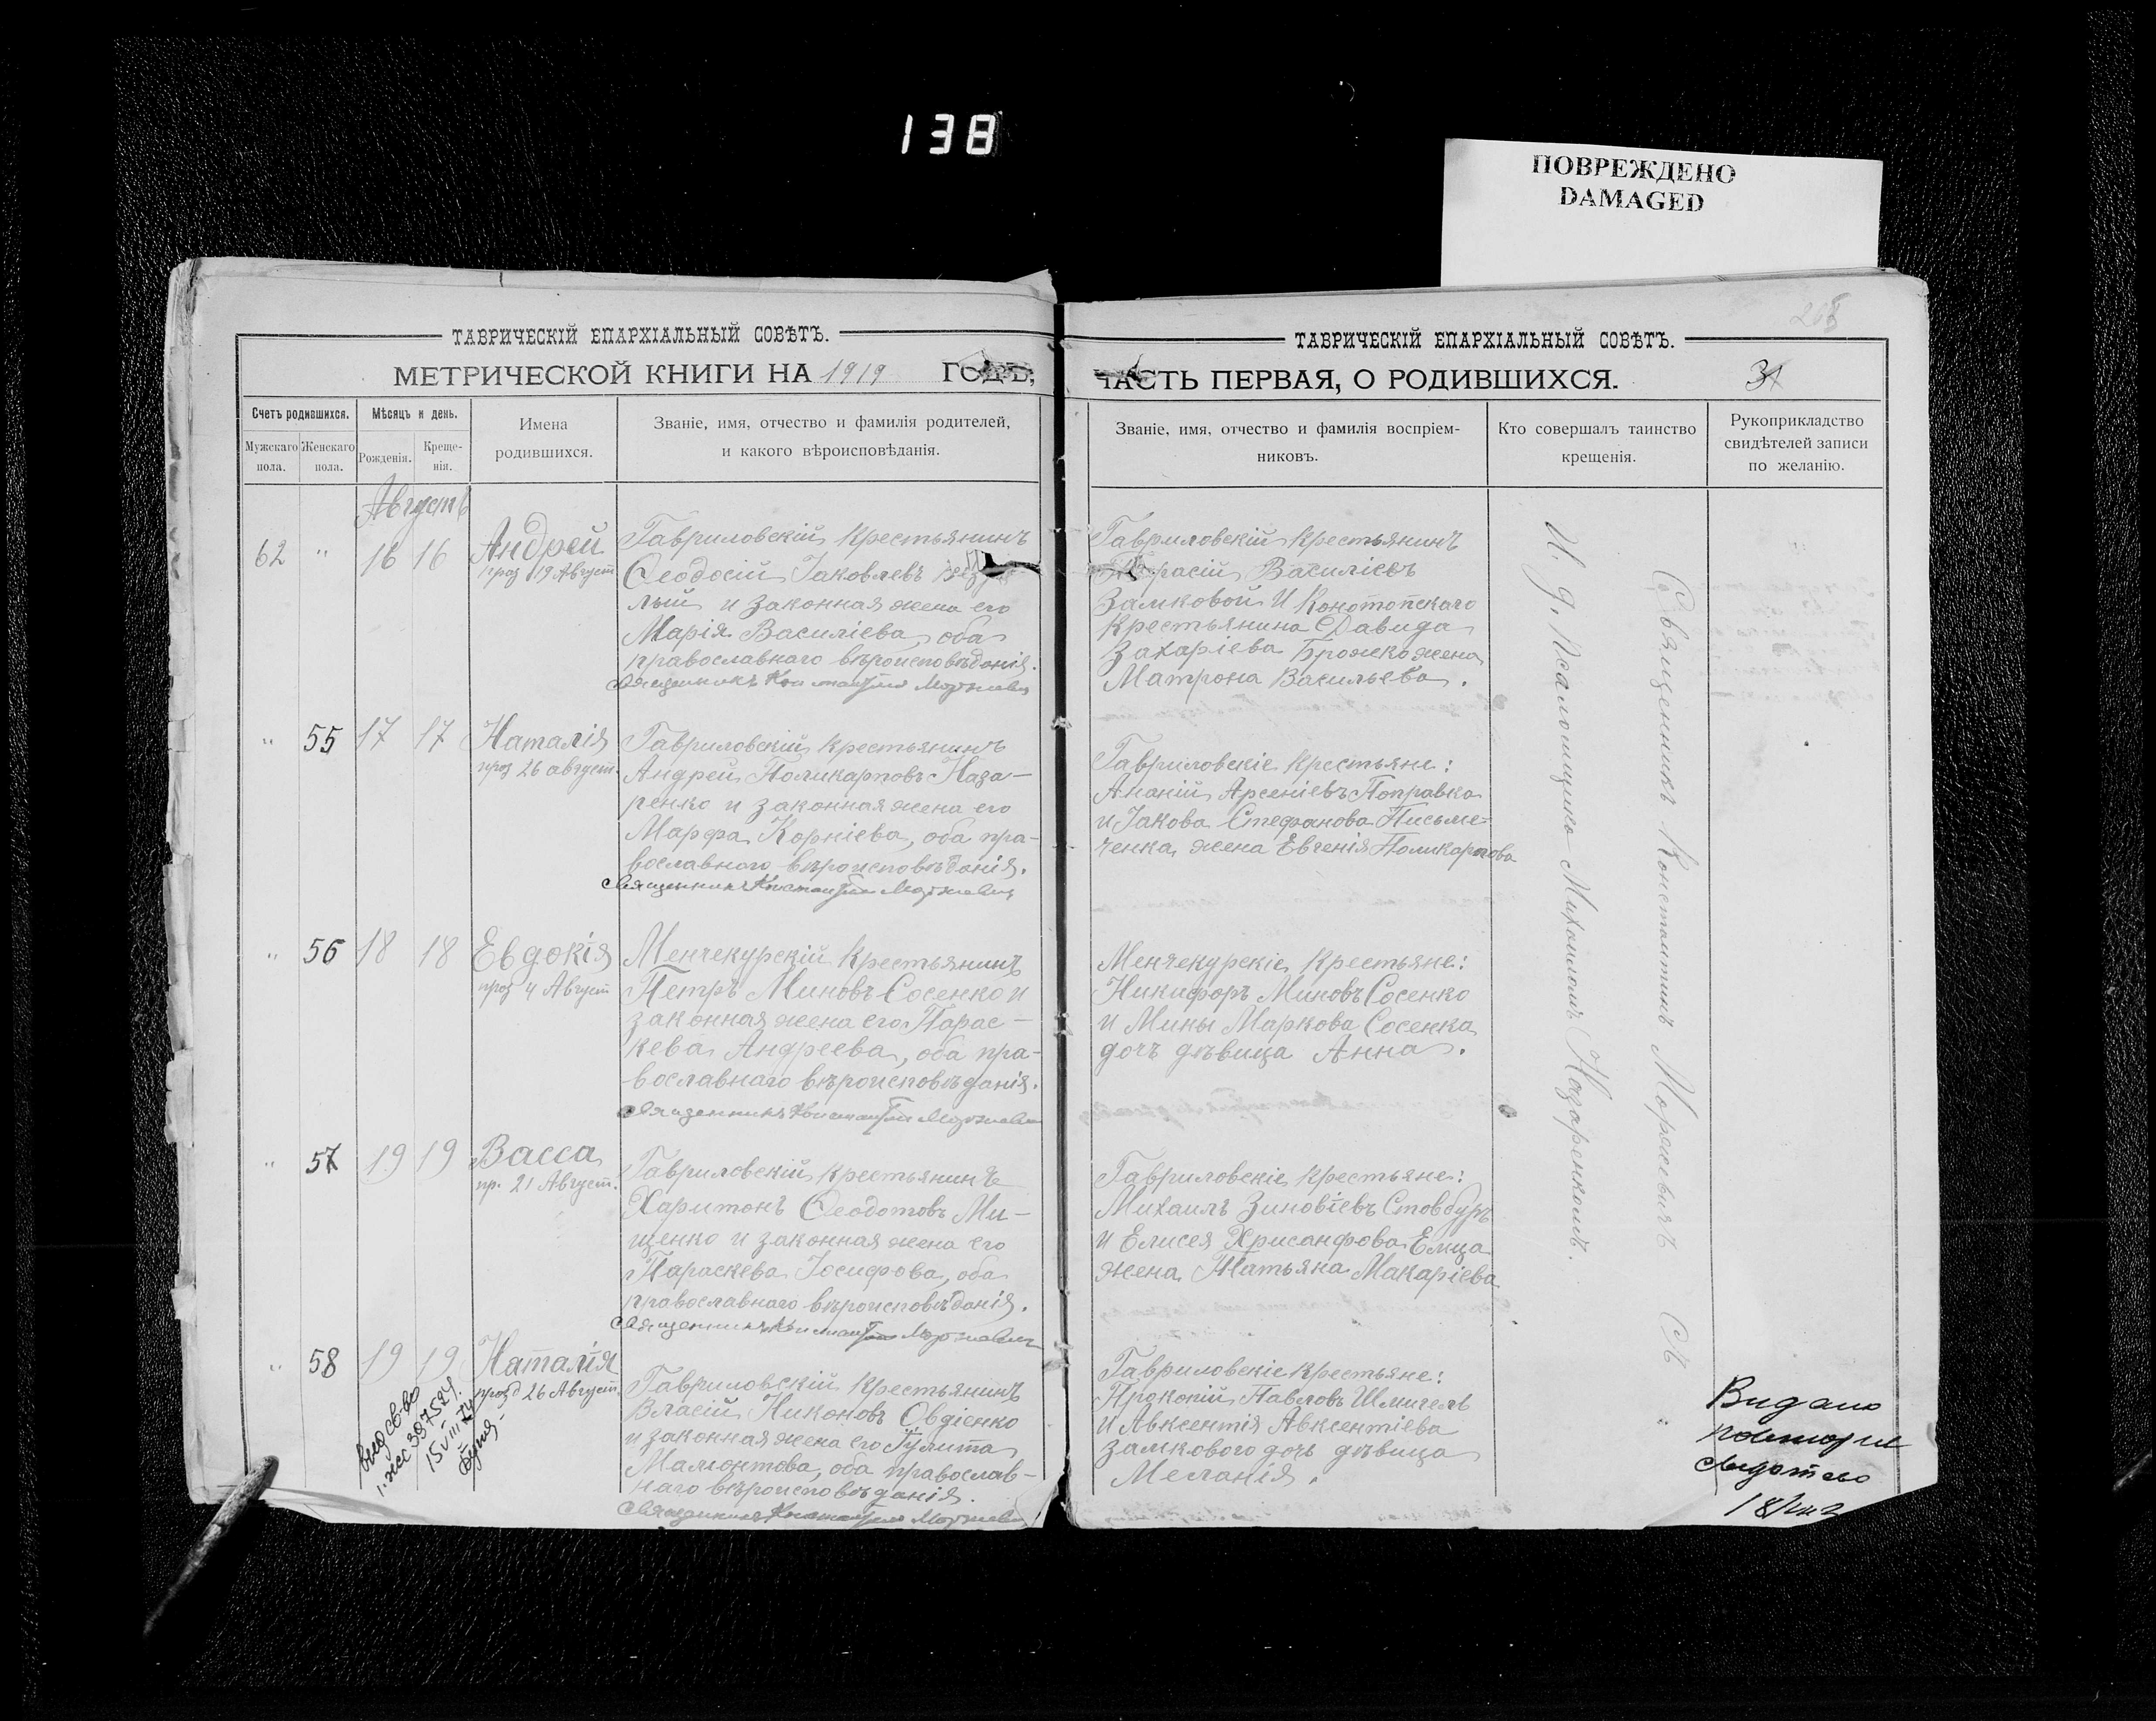 138
ПОВРЕЖДЕНО
DAMAGED
ТАВРИЧЕСКІЙ ЕПАРХІАЛЬНЫЙ СОВѢТЪ.
МЕТРИЧЕСКОЙ КНИГИ НА 1919 ГОДЪ,
Счетъ родившихся.
Мужскаго пола.
Женскаго пола.
Мѣсяцъ и день.
Рожденія.
Креще-
нія.
Имена
родившихся.
Званіе, имя, отчество и фамилія родителей,
и какого вѣроисповѣданія.
Августъ
62 " 16 16 Андрей
праз 19 Август
Гавриловскій крестьянинъ
Ѳеодосій Іаковлевъ
лый и законная жена его
Марія Василіева, оба
православнаго вѣроисповѣданія.
Священникъ
" 55 17 17 Наталія
праз 26 август.
Гавриловскій крестьянинъ
Андрей Поликарповъ Наза-
ренко и законная жена его
Марфа Корніева, оба пра-
вославнаго вѣроисповѣданія.
Священникъ
" 56 18 18 Евдокія
праз 4 Август
Менчекурскій крестьянинъ
Петръ Миновъ Сосенко и
законная жена его Парас-
кева Андреева, оба пра-
вославнаго вѣроисповѣданія.
Священникъ
" 57 19 19 Васса
пр. 21 Август.
Гавриловскій крестьянинъ
Харитонъ Ѳеодотовъ Ми-
щенко и законная жена его
Параскева Іосифова, оба
православнаго вѣроисповѣданія.
Священникъ
" 58 19 19 Наталія
празд 26 Август.
Гавриловскій крестьянинъ
Власій Никоновъ Овдіенко
и законная жена его Іулита
Мамонтова, оба православ-
наго вѣроисповѣданія.
Священникъ
ТАВРИЧЕСКІЙ ЕПАРХІАЛЬНЫЙ СОВѢТЪ.
ЧАСТЬ ПЕРВАЯ, О РОДИВШИХСЯ.
Званіе, имя, отчество и фамилія воспріем-
никовъ.
Кто совершалъ таинство
крещенія.
Рукоприкладство
свидѣтелей записи
по желанію.
Гавриловскій крестьянинъ
Василіевъ
Замковой и Конотопскаго
крестьянина Давида
Захаріева Брожко жена
Матрона Васильева.
Гавриловскіе крестьяне:
Ананій Арсеніевъ Поправка
и Іакова Стефанова Письме-
ченка жена Евгенія Поликарпова
Менчекурскіе крестьяне:
Никифоръ Миновъ Сосенко
и Мины Маркова Сосенка
дочъ дѣвица Анна.
Гавриловскіе крестьяне:
Михаилъ Зиновіевъ Стовбуръ
и Елисея Хрисанфова Емца
жена Татьяна Макаріева
Гавриловскіе крестьяне:
Прокопій Павловъ Шмигель
и Авксентія Авксентіева
Замкового дочь дѣвица
Меланія.
Священникъ Константинъ Моржевичъ Съ
И. д. Псаломщика Михаиломъ Назаренкомъ.
Видано